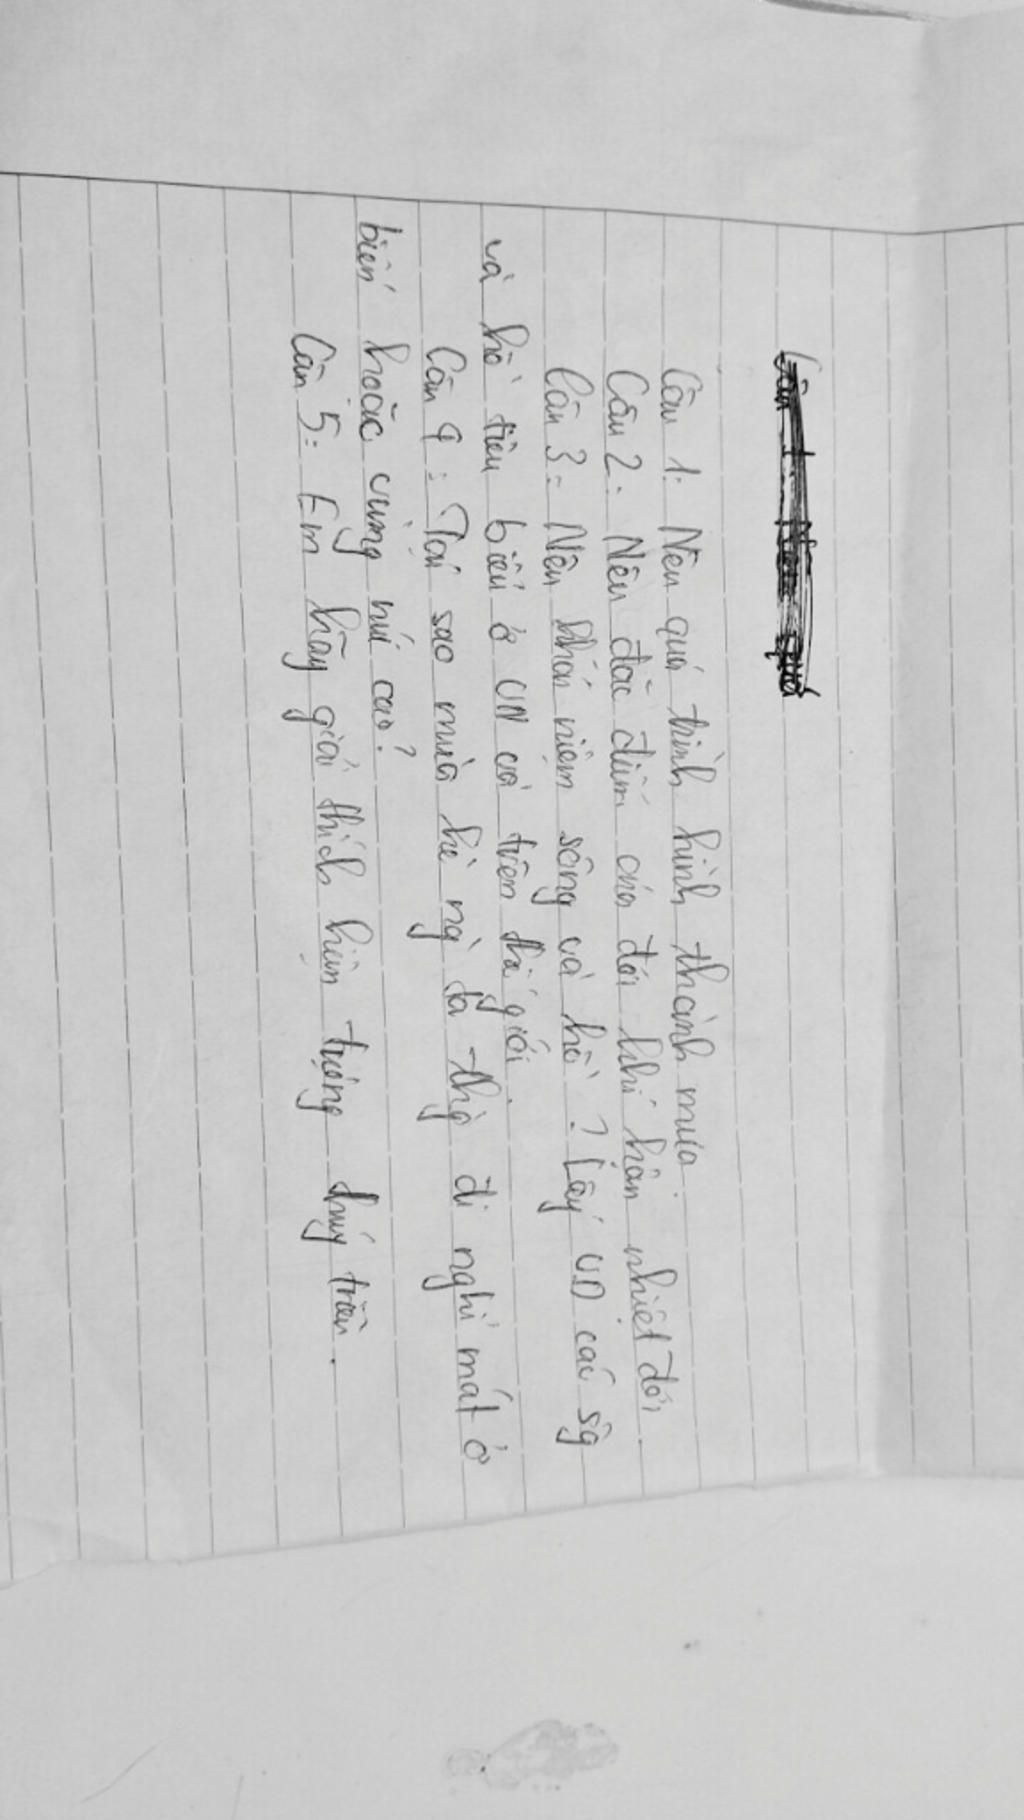 Câu 1: Nêu quá trình hình thành mưa.
Câu 2: Nêu đặc điểm của đới khí hậu nhiệt đới.
Câu 3: Nêu khái niệm sông và hồ? Lấy VD các sg
và hồ tiêu biểu ở VN và trên thế giới.
Câu 4: Tại sao mùa hè ng ta thg đi nghỉ mát ở
biển hoặc vùng núi cao?
Câu 5: Em hãy giải thích hiện tượng thuỷ triều.